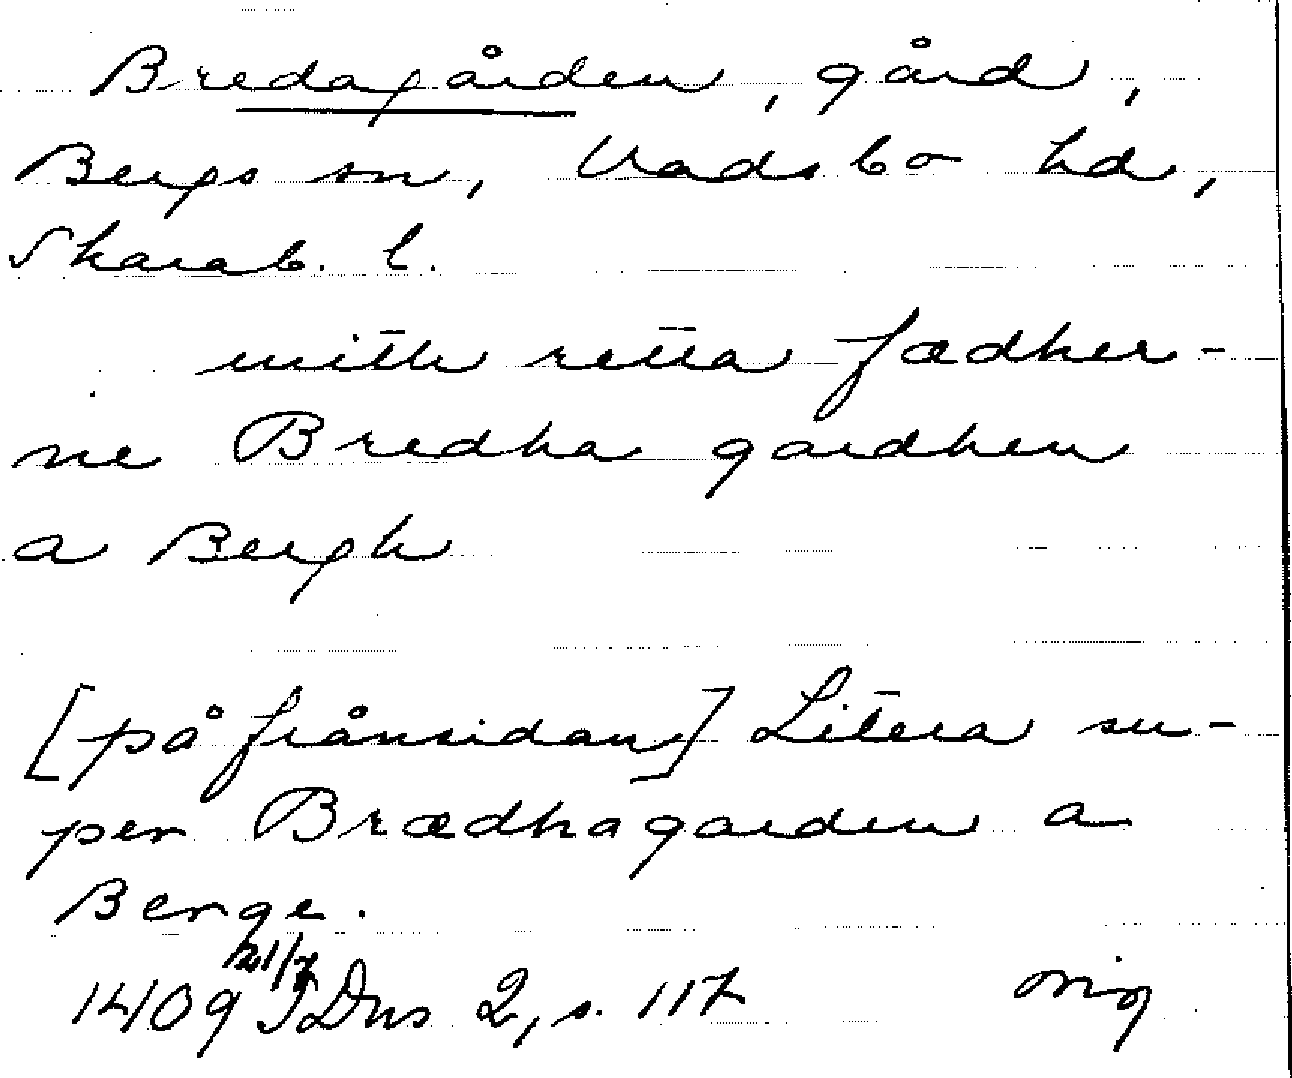 Bredagården, gård,
Bergs sn, Vadsbo hd,
Skarab. l.
mitth retta fædher-
ne Bredha gardhen
a Bergh
[på frånsidan] Litera su-
per Brædhagarden a
Berge.
1409 21/7 SDns 2, s. 117 orig